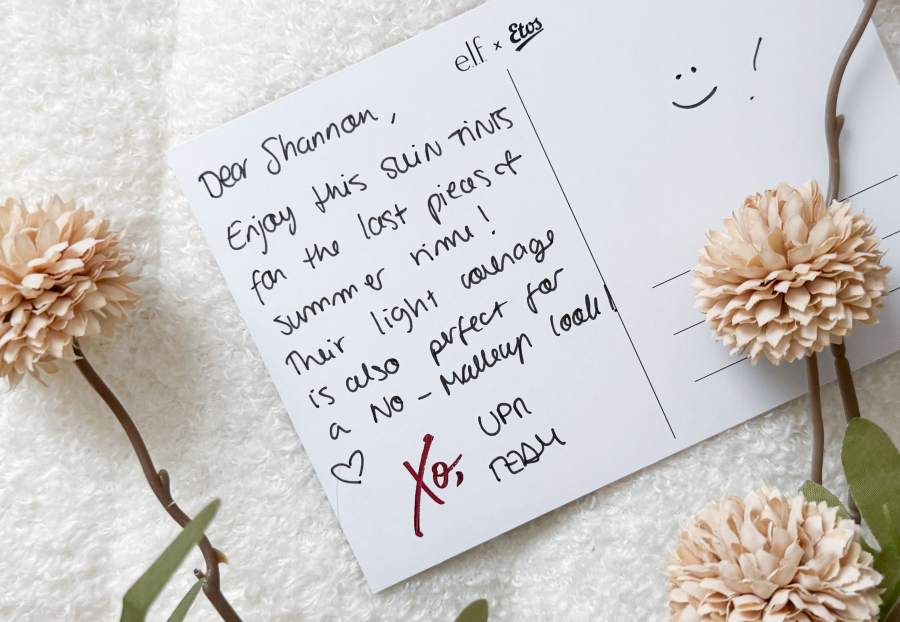 e.l.f. x Etos
Dear Shannon,
Enjoy this skin tints
for the last pieces of
summer time!
Their light coverage
is also perfect for
a No-Makeup look!
♡ Xo, UPR
TEAM
:) !